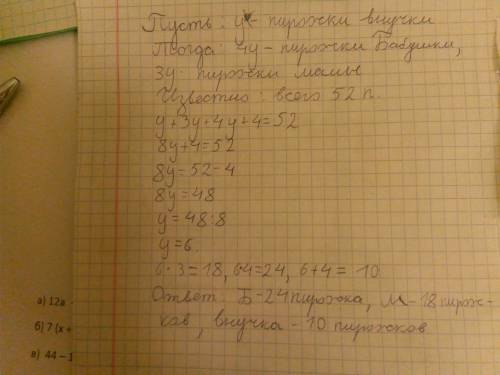 Пусть: у - пирожки внучки
Тогда: 4у - пирожки Бабушки,
3у - пирожки мамы
Известно: всего 52 п.
у+3у+4у+4=52
8у+4=52
8у=52-4
8у=48
у=48:8
у=6.
6·3=18, 6·4=24, 6+4= 10
Ответ: Б-24 пирожка, М-18 пирож-
ков, внучка - 10 пирожков
а) 12а
б) 7(х +
в) 44 - 1